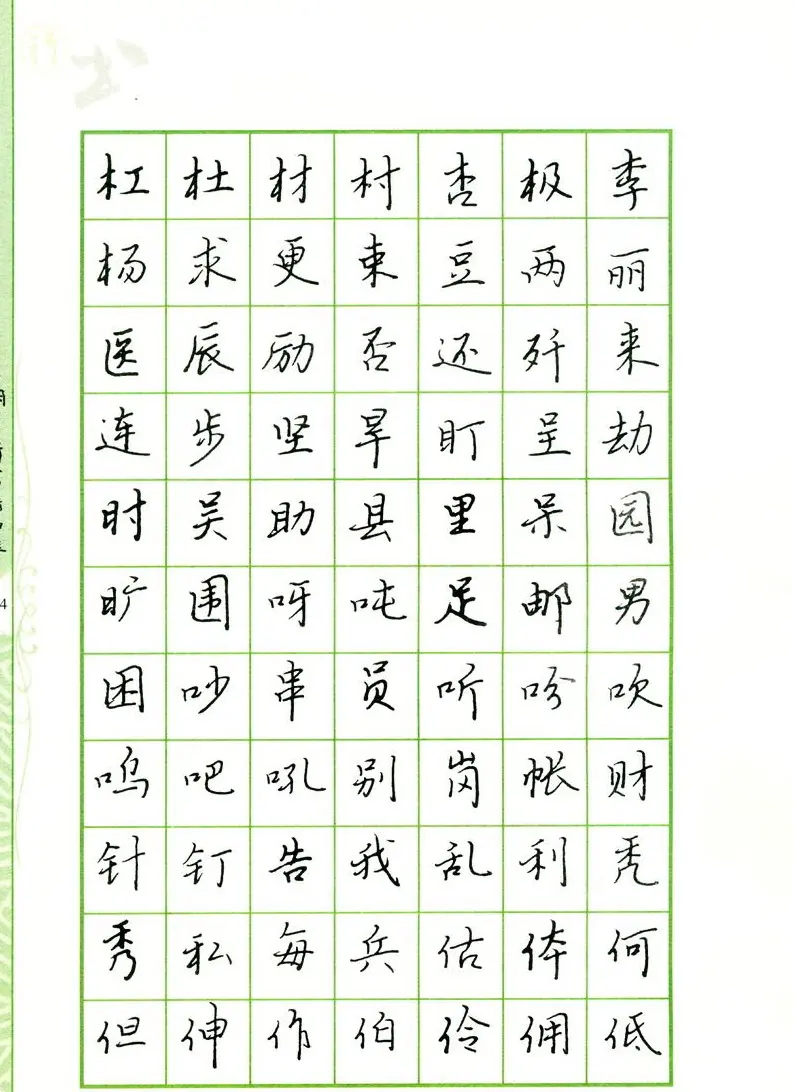 杠杜材村杏极李
杨求更束豆两丽
医辰励否还歼来
连步坚旱盯呈劫
时吴助县里呆园
旷围呀吨足邮男
困吵串员听吩吹
呜吧吼别岗帐财
针钉告我乱利秃
秀私每兵估体何
但伸作伯伶佣低
4